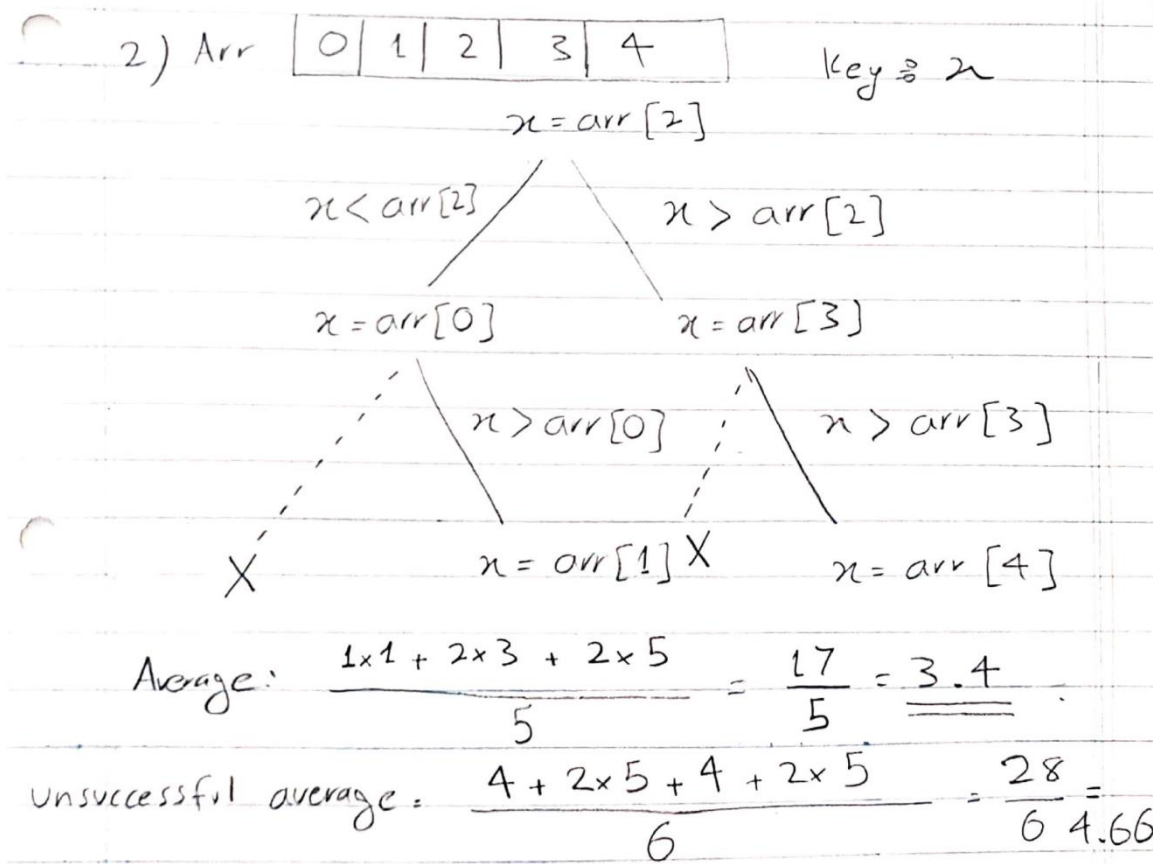 2) Arr 0 1 2 3 4 Key: x
x = arr [2]
x < arr[2] x > arr [2]
x = arr[0] x = arr [3]
x > arr [0] x > arr [3]
X x = arr [1] X x = arr [4]
Average: 1x1 + 2x3 + 2x5 / 5 = 17 / 5 = 3.4
unsuccessful average = 4 + 2x5 + 4 + 2x5 / 6 = 28 / 6 = 4.66